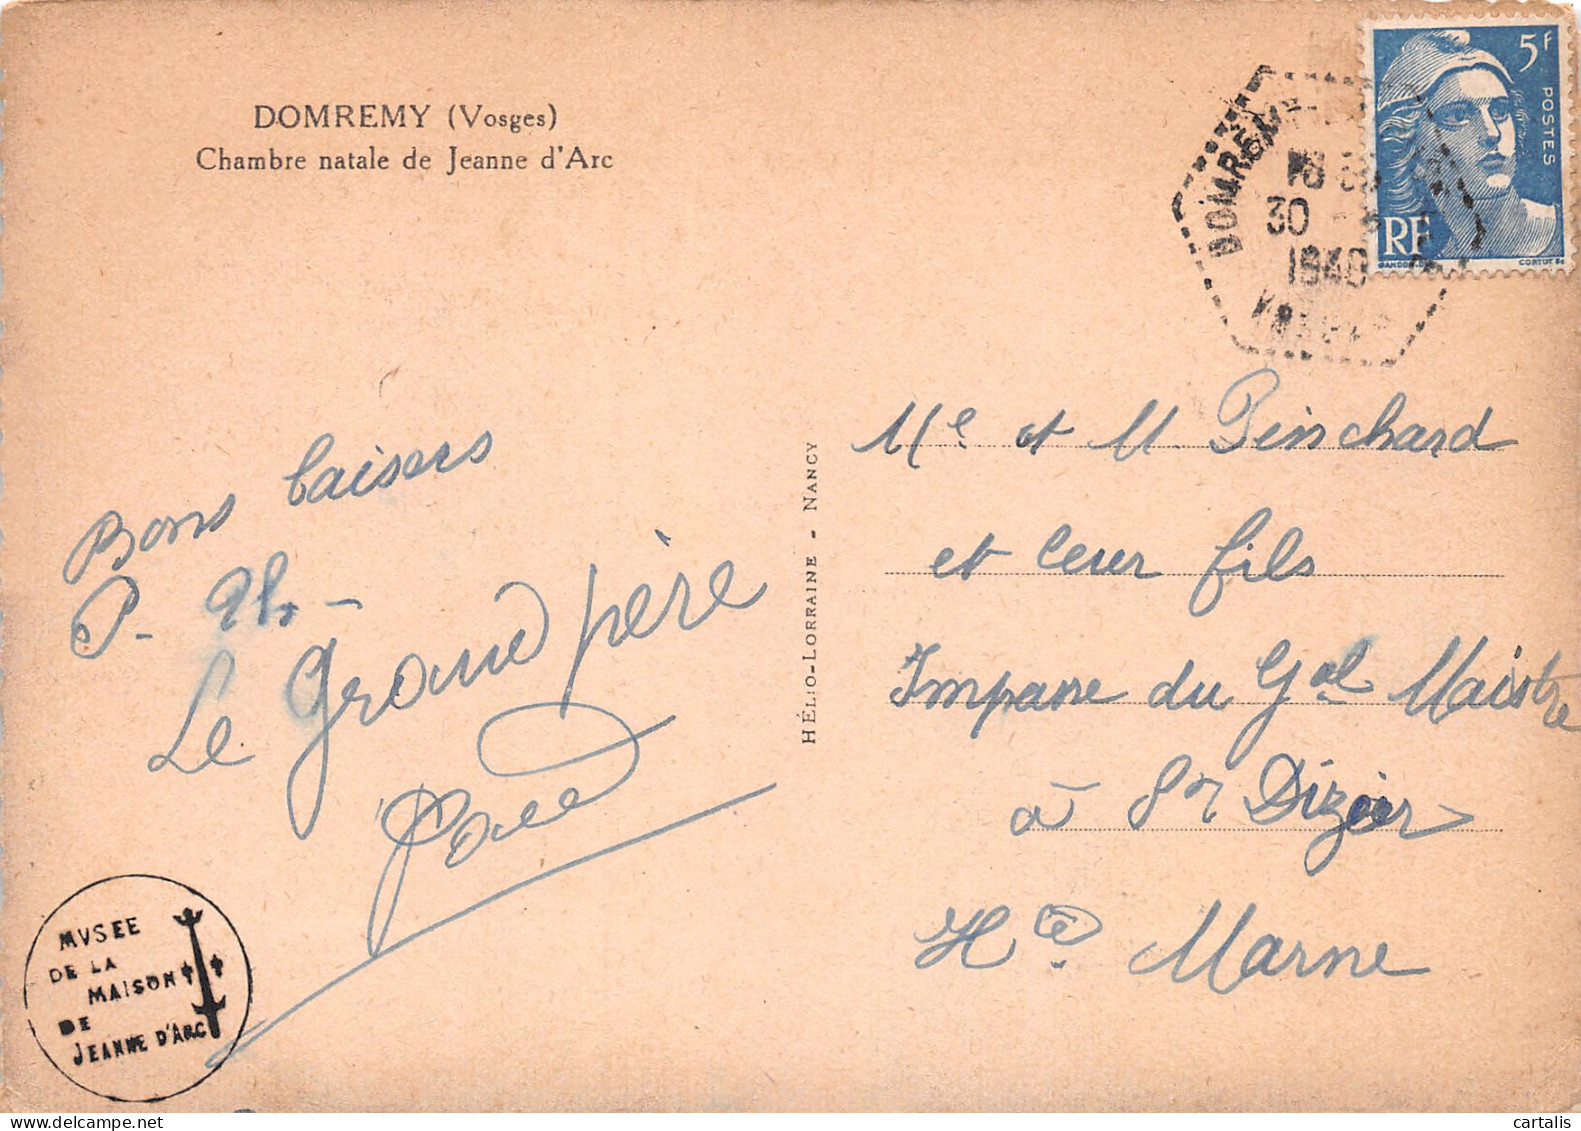 DOMREMY (Vosges)
Chambre natale de Jeanne d'Arc
5f
POSTES
RF
GANDON
CORTOT SC
DOMREMY
30
Bons baisers
P.
Le Grand père
HÉLIO-LORRAINE - NANCY
Me et M Pinchard
et leur fils
Impasse du Gal Maistre
à St Dizier
Hte Marne
MVSEE
DE LA
MAISON
DE
JEANNE D'ARC
cartalis